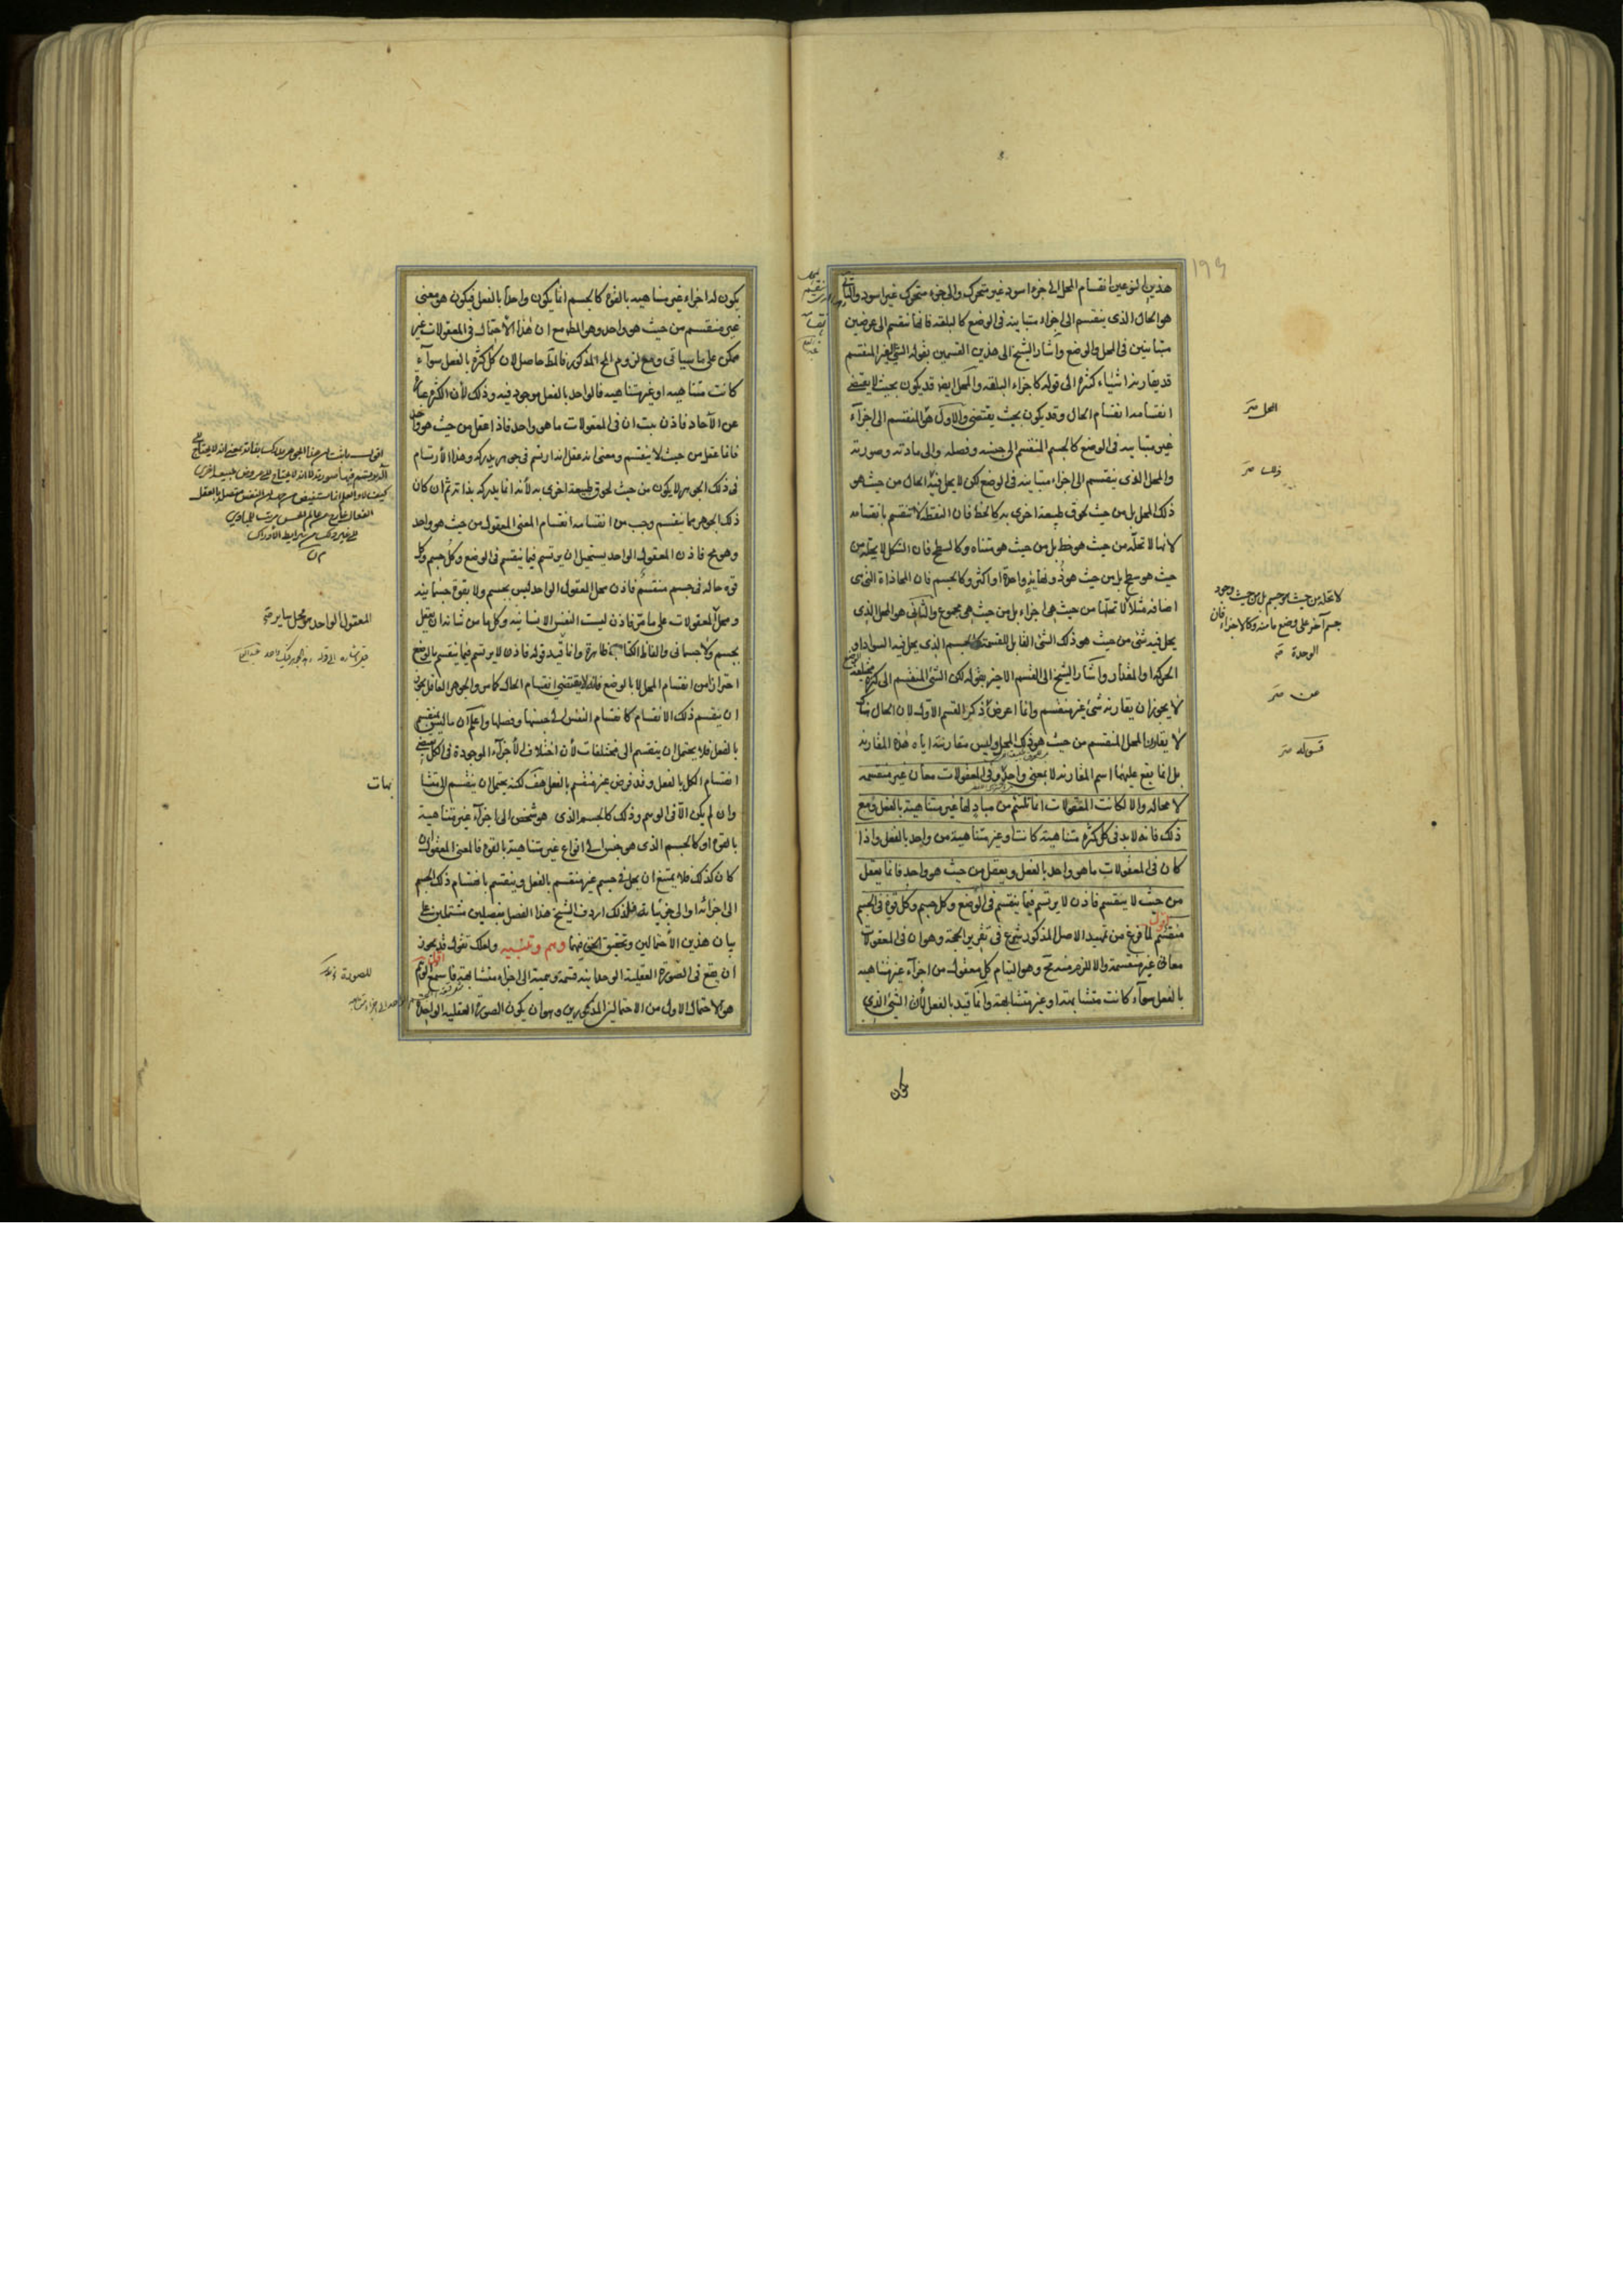 هذين النوعين انقسام المحل الى جزء اسود غير متحرك والى جزء متحرك غير اسود والثانى
هو الحال الذى ينقسم الى اجزاء متباينة فى الوضع كالبلقة فانها تنقسم الى عرضين
متباينين فى المحل والوضع واشار الشيخ الى هذين القسمين بقوله الشئ الغير المنقسم
قد يقارنه اشياء كثيرة الى قوله كاجزاء البلقة والمحل ايضا قد يكون بحيث لا يقتضى
انقسامه انقسام الحال وقد يكون بحيث يقتضى والاول هو المنقسم الى اجزاء
غير متباينة فى الوضع كالجسم المنقسم الى جنسه وفصله والى مادته وصورته
والمحل الذى ينقسم الى اجزاء متباينة فى الوضع لكن لا يحل فيه الحال من حيث هو
ذلك المحل بل من حيث لحوق طبيعة اخرى به كالخط فان النقطة لا تنقسم بانقسامه
لانها لا تحله من حيث هو خط بل من حيث هو متناه وكالسطح فان الشكل لا يحله من
حيث هو سطح بل من حيث هو ذو نهاية واحدة او اكثر وكالجسم فان المحاذاة التى هى
اضافة مثلا لا تحلها من حيث هى اجزاء بل من حيث هى مجموع والثانى هو المحل الذى
يحل فيه شئ من حيث هو ذلك الشئ القابل للقسمة كالجسم الذى يحل فيه السواد او
الحركة او المقدار واشار الشيخ الى القسم الاخير بقوله لكن الشئ المنقسم الى كثرة مختلفة الوضع
لا يجوز ان يقارنه شئ غير منقسم وانما اعرض عن ذكر القسم الاول لان الحال هناك
لا يقارن المحل المنقسم من حيث هو ذلك المحل وليس مقارنته اياه هذه المقارنة
بل انما يقع عليهما اسم المقارنة لا بمعنى واحد وفى المعقولات معان غير منقسمة
لا محالة والا لكانت المعقولات انما تلتئم من مباد لها غير متناهية بالفعل ومع
ذلك فانه لا بد فى كل كثرة متناهية كانت او غير متناهية من واحد بالفعل واذا
كان فى المعقولات ما هو واحد بالفعل ويعقل من حيث هو واحد فانما يعقل
من حيث لا ينقسم فاذن لا يرتسم فيما ينقسم فى الوضع وكل جسم وكل قوة فى الجسم
منقسم اقول لما فرغ من تمهيد الاصل المذكور شرع فى تقرير الحجة وهو ان فى المعقولات
معانى غير منقسمة والا لزم منه مح وهو التيام كل معقول من اجزاء غير متناهية
بالفعل سواء كانت متشابهة او غير متشابهة وانما قيد بالفعل لان الشئ الذى
المحل
لا تحله من حيث هو جسم بل من حيث وجود
جسم آخر على وضع ما منه وكالاجزاء فان
الوحدة
يكون له اجزاء غير متناهية بالقوة كالجسم انما يكون واحدا بالفعل فيكون هو معنى
غير منقسم من حيث هو واحد وهو المط مع ان هذا الاحتمال فى المعقولات غير
ممكن على ما سياتى ومع لزوم المح المذكور فالمط حاصل لان كل كثرة بالفعل سواء
كانت متناهية او غير متناهية فالواحد بالفعل موجود فيه وذلك لان الكثرة عبارة
عن الآحاد فاذن ثبت ان فى المعقولات ما هو واحد فاذا عقل من حيث هو واحد
فانما عقل من حيث لا ينقسم ومعنى انه عقل انه ارتسم فى جوهر يدركه وهذا الارتسام
فى ذلك الجوهر لا يكون من حيث لحوق طبيعة اخرى به لانه انما يدركه بذاته ثم ان كان
ذلك الجوهر مما ينقسم وجب من انقسامه انقسام المعنى المعقول من حيث هو واحد
وهو مح فاذن المعقول الواحد يستحيل ان يرتسم فيما ينقسم فى الوضع وكل جسم وكل
قوة حالة فى جسم منقسم فاذن محل المعقول الواحد ليس بجسم ولا بقوة جسمانية
ومحل المعقولات على ما مر فاذن ليست النفس الانسانية وكل ما من شانه ان يعقل
بجسم ولا جسمانى والفاظ الكتاب ظاهرة وانما قيد قوله فاذن لا يرتسم فيما ينقسم بالوضع
احترازا من انقسام المحل لا بالوضع فانه لا يقتضى انقسام الحال كما مر والجوهر العاقل يجوز
ان ينقسم ذلك الانقسام كانقسام النفس الى جنسها وفصلها واعلم ان ما ليس ينقسم
بالفعل فلا يحتمل ان ينقسم الى مختلفات لان اختلاف الاجزاء الموجودة فى الكل يقتضى
انقسام الكل بالفعل وقد فرض غير منقسم بالفعل هف لكنه يحتمل ان ينقسم الى متشا
بهات
وان لم يكن الا فى الوهم وذلك كالجسم الذى هو شخص الى اجزاء غير متناهية
بالقوة او كالجسم الذى هو جنس الى انواع غير متناهية بالقوة فالمعنى المعقول ان
كان كذلك فلا يمتنع ان يحل فى جسم غير منقسم بالفعل وينقسم بانقسام ذلك الجسم
الى اجزائه او الى جزئياته فلذلك اردف الشيخ هذا الفصل بفصلين مشتملين على
بيان هذين الاحتمالين وتحقيق الحق فيهما وهم وتنبيه ولعلك تقول قد يجوز
ان يقع فى الصورة العقلية الوحدانية قسمة وهمية الى اجزاء متشابهة فاسمع اقول الوهم
هو الاحتمال الاول من الاحتمالين المذكورين وهو ان يكون الصورة العقلية الواحدة
المعقول الواحد هو محل ساير